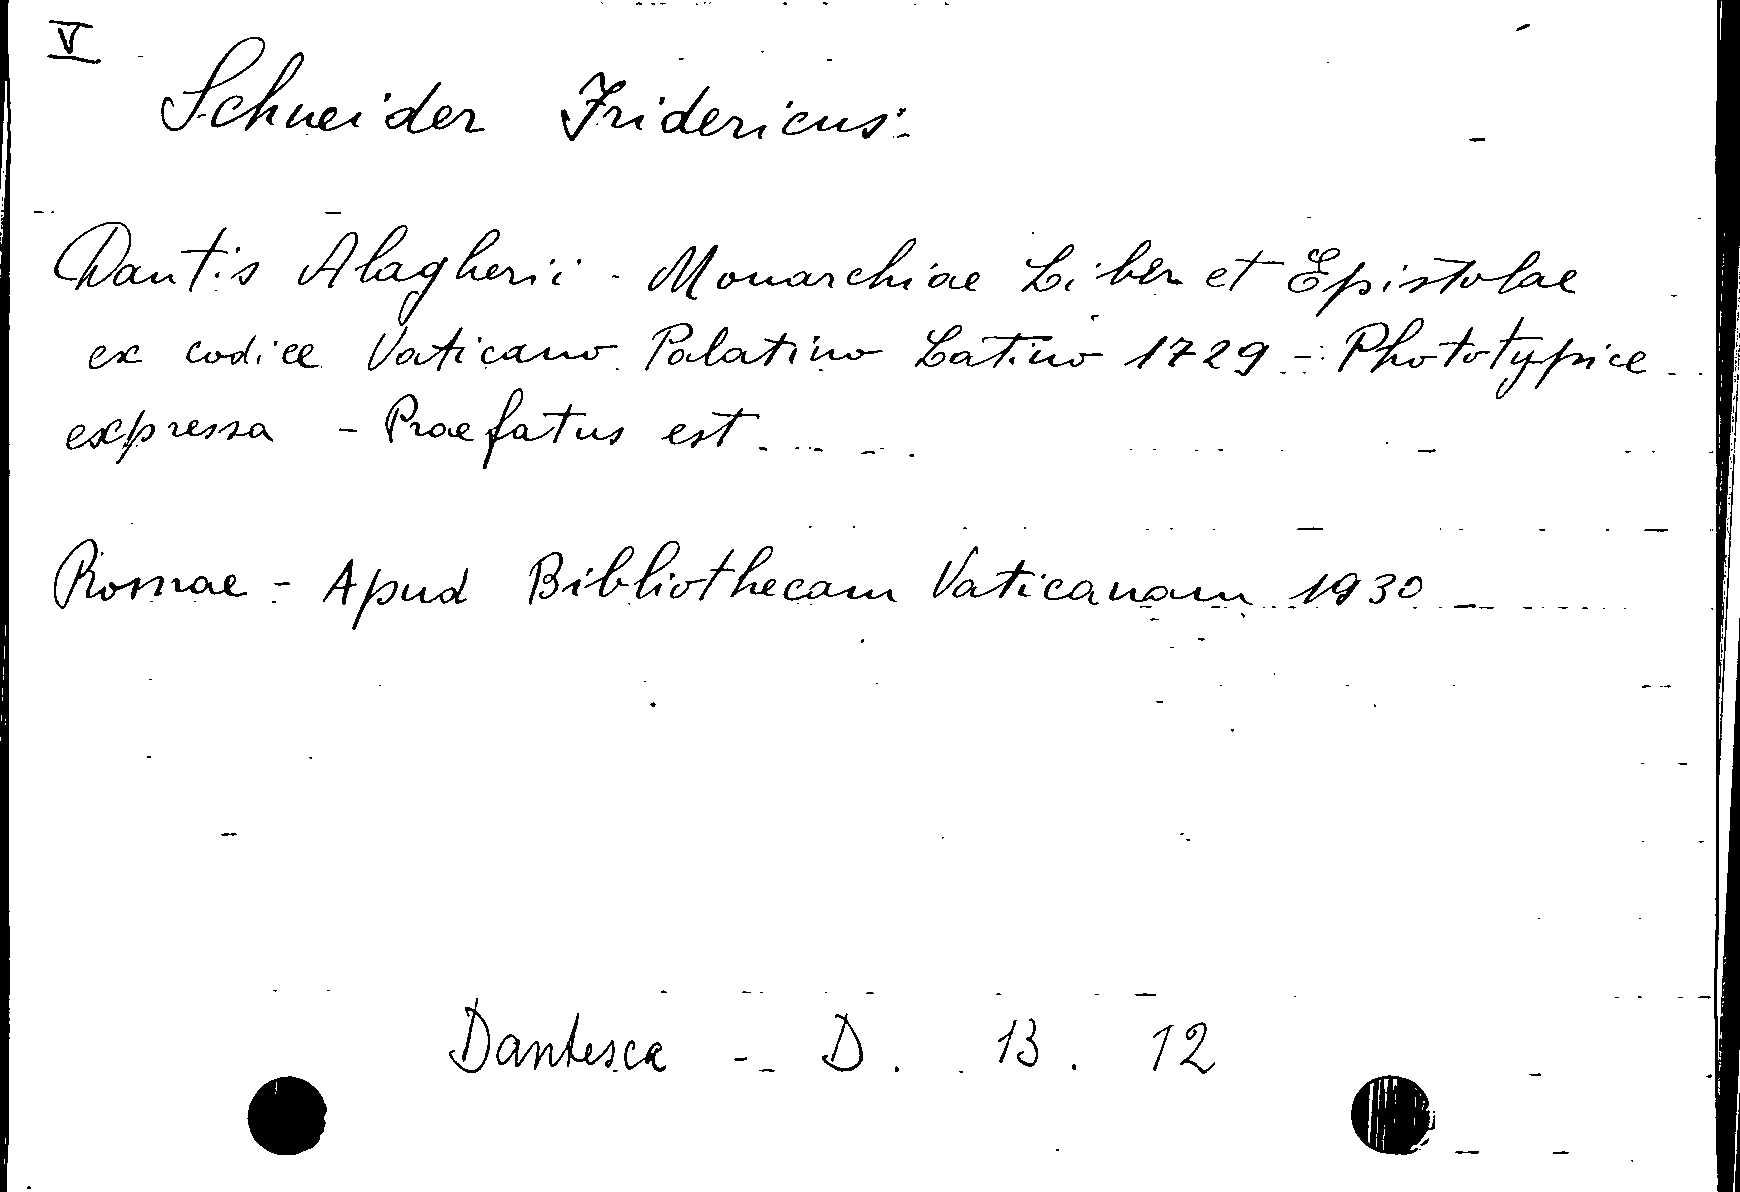 V
Schneider Fridericus
Dantis Alagherii - Monarchiae Liber et Epistolae
ex codice Vaticano Palatino Latino 1729 - Phototypice
expressa - Praefatus est
Romae - Apud Bibliothecam Vaticanam 1930
Dantesca - D. 13. 12